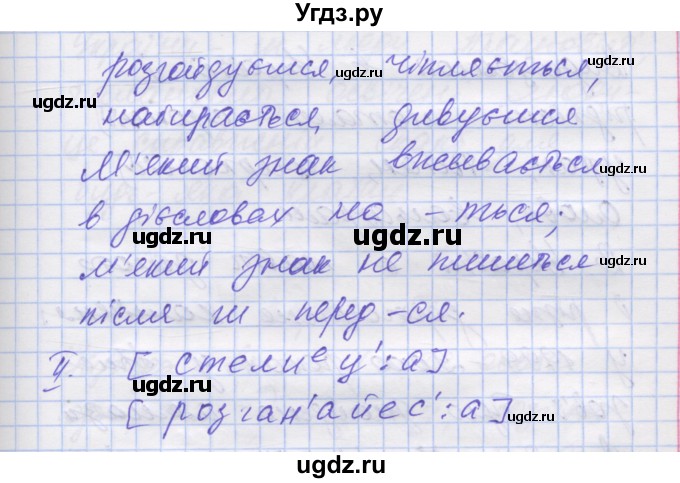 Угдз.ру
розгойдуєшся, чіпляється,
набирається, дивуєшся
М'який знак вживається
в дієсловах на -ться;
м'який знак не пишеться
після ш перед -ся.
ІІ. [стелиец':а]
[розган'айес':а]
ugdz.ru
ugdz.ru
ugdz.ru
ugdz.ru
ugdz.ru
ugdz.ru
ugdz.ru
ugdz.ru
ugdz.ru
ugdz.ru
ugdz.ru